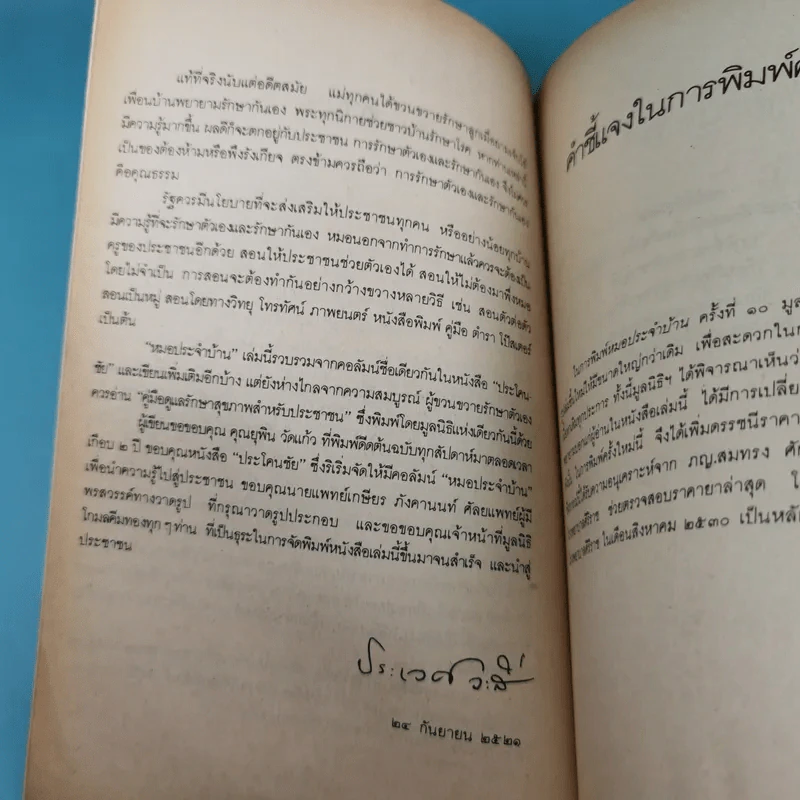 แท้ที่จริงนับแต่อดีตสมัย แม่ทุกคนได้ขวนขวายรักษาลูกเมื่อยามเจ็บไข้
เพื่อนบ้านพยายามรักษากันเอง พระทุกนิกายช่วยชาวบ้านรักษาโรค หากท่านเหล่านี้
มีความรู้มากขึ้น ผลดีก็จะตกอยู่กับประชาชน การรักษาตัวเองและรักษากันเอง จึงไม่ควร
เป็นของต้องห้ามหรือพึงรังเกียจ ตรงข้ามควรถือว่า การรักษาตัวเองและรักษากันเอง
คือคุณธรรม
รัฐควรมีนโยบายที่จะส่งเสริมให้ประชาชนทุกคน หรืออย่างน้อยทุกบ้าน
มีความรู้ที่จะรักษาตัวเองและรักษากันเอง หมอนอกจากทำการรักษาแล้วควรจะต้องเป็น
ครูของประชาชนอีกด้วย สอนให้ประชาชนช่วยตัวเองได้ สอนให้ไม่ต้องมาพึ่งหมอ
โดยไม่จำเป็น การสอนจะต้องทำกันอย่างกว้างขวางหลายวิธี เช่น สอนตัวต่อตัว
สอนเป็นหมู่ สอนโดยทางวิทยุ โทรทัศน์ ภาพยนตร์ หนังสือพิมพ์ คู่มือ ตำรา โป๊สเตอร์
เป็นต้น
“หมอประจำบ้าน” เล่มนี้รวบรวมจากคอลัมน์ชื่อเดียวกันในหนังสือ “ประโคนชัย”
ชัย” และเขียนเพิ่มเติมอีกบ้าง แต่ยังห่างไกลจากความสมบูรณ์ ผู้ขวนขวายรักษาตัวเอง
ควรอ่าน “คู่มือดูแลรักษาสุขภาพสำหรับประชาชน” ซึ่งพิมพ์โดยมูลนิธิแห่งเดียวกันนี้ด้วย
ผู้เขียนขอขอบคุณ คุณยุพิน วัดแก้ว ที่พิมพ์ดีดต้นฉบับทุกสัปดาห์มาตลอดเวลา
เกือบ ๒ ปี ขอบคุณหนังสือ “ประโคนชัย” ซึ่งริเริ่มจัดให้มีคอลัมน์ “หมอประจำบ้าน”
เพื่อนำความรู้ไปสู่ประชาชน ขอบคุณนายแพทย์เกษียร ภังคานนท์ ศัลยแพทย์ผู้มี
พรสวรรค์ทางวาดรูป ที่กรุณาวาดรูปประกอบ และขอขอบคุณเจ้าหน้าที่มูลนิธิ
โกมลคีมทองทุก ๆ ท่าน ที่เป็นธุระในการจัดพิมพ์หนังสือเล่มนี้ขึ้นมาจนสำเร็จ และนำสู่
ประชาชน
ประเวศ วะสี
๒๔ กันยายน ๒๕๒๑
คำชี้แจงในการพิมพ์
ในการพิมพ์หมอประจำบ้าน ครั้งที่ ๑๐
ให้มีขนาดใหญ่กว่าเดิม เพื่อสะดวกใน
ทุกประการ ทั้งนี้มูลนิธิฯ ได้พิจารณาเห็นว่า
ผู้อ่านในหนังสือเล่มนี้ ได้มีการเปลี่ยน
ในการพิมพ์ครั้งใหม่นี้ จึงได้เพิ่มดรรชนีราคา
ได้รับความอนุเคราะห์จาก ภญ.สมทรง
ช่วยตรวจสอบราคายาล่าสุด
ในเดือนสิงหาคม ๒๕๓๐ เป็นหลัก